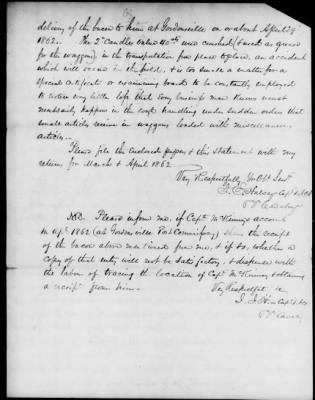 delivery of the bacon to him at Gordonsville on or about April 28
1862. The 2 Candles valued 40cts were crushed (used as grease
for the waggons), in the transportation from place to place, an accident
which will occur in the field. & is too small a matter for a
special certificate or examining board to be constantly employed
to action very little loss that any business man knows must
necessarily happen in the rough handling under sudden orders that
small articles receive in waggons loaded with miscellaneous
articles.
Please file the enclosed papers & this statement with my
returns for March & April 1862
Very Respectfully Yr Obt Servt
Capt &
6 Va Cavalry
NB. Please inform me, if Capt McKinney's accounts
in Apl. 1862 (at Gordonsville Post Commissary) show the receipt
of the bacon above mentioned from me, & if so, whether a
copy of that entry will not be satisfactory, & dispense with
the labor of tracing the location of Capt McKinney & obtaining
a receipt from him.
Very Respectful &c
Capt &
6 Va Cavalry